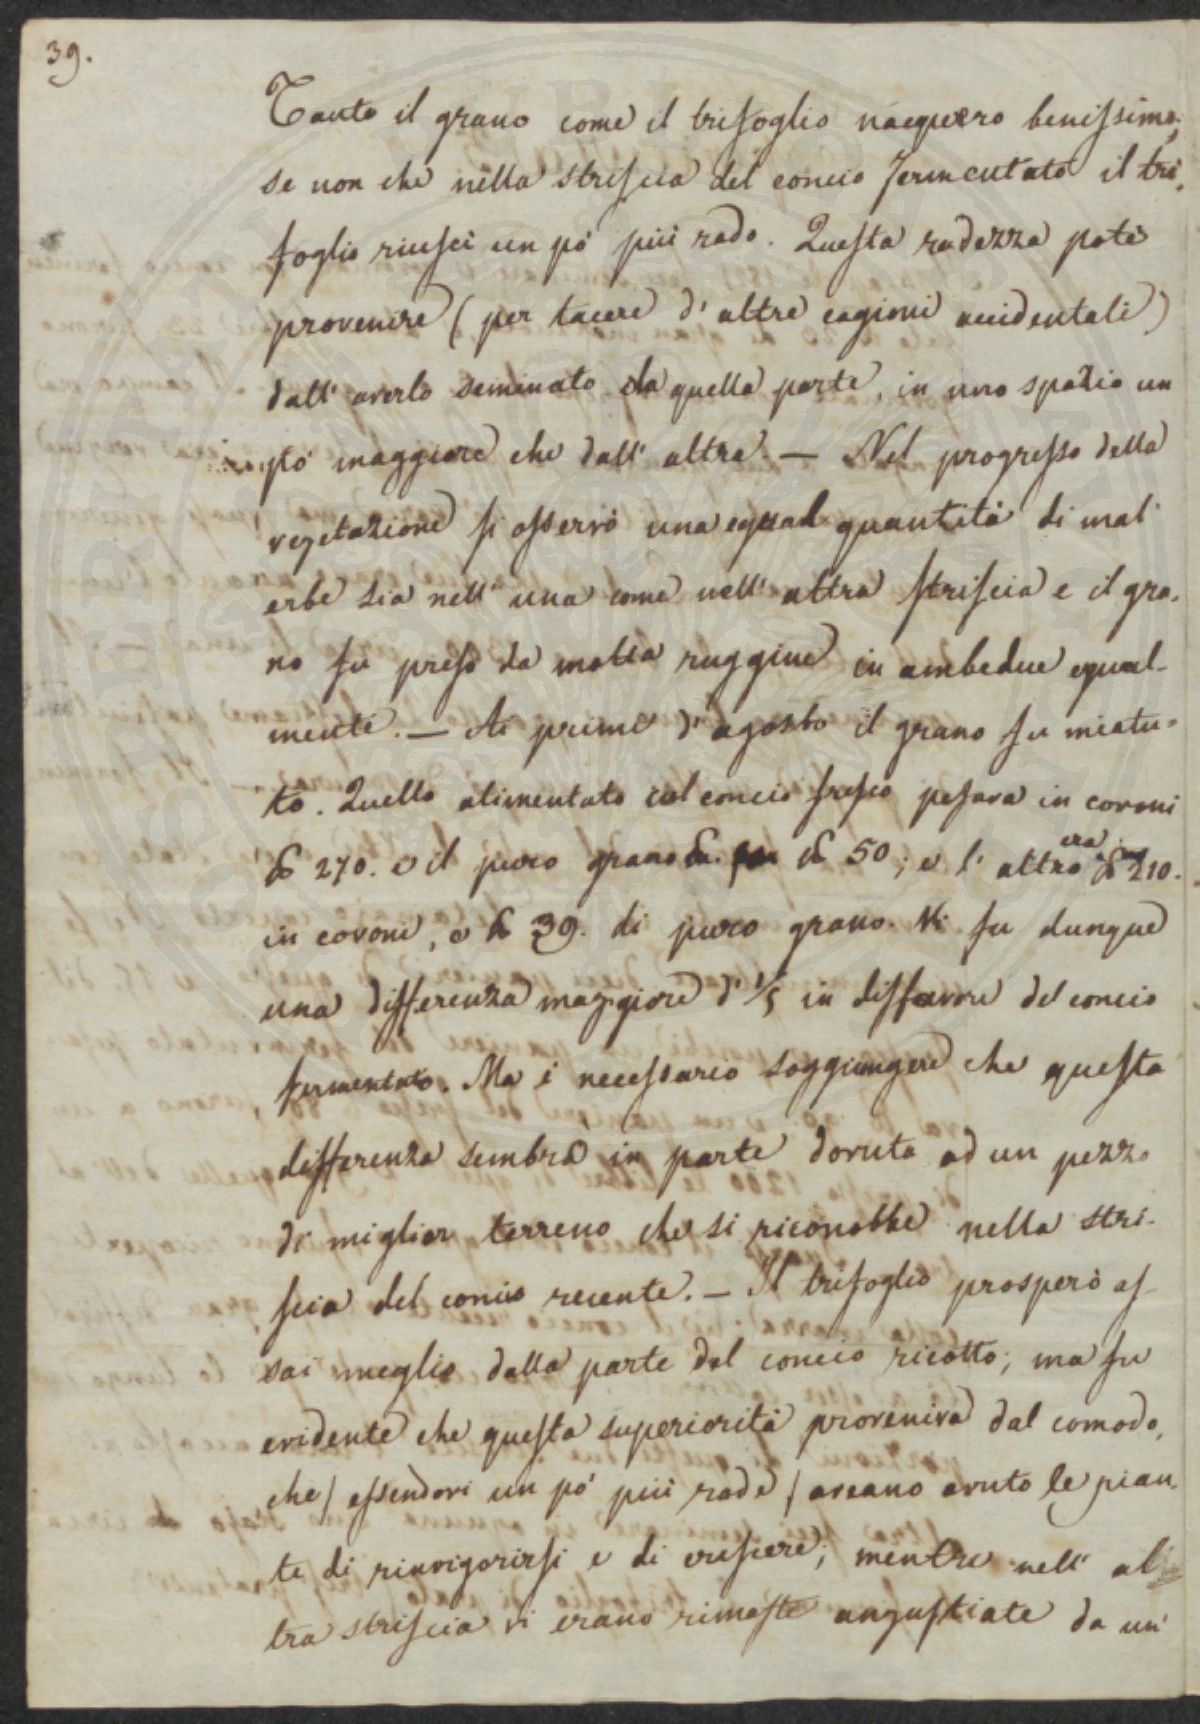 39.
Tanto il grano come il trifoglio nacquero benissimo,
se non che nella striscia del concio fermentato il tri,
foglio riuscì un pò più rado. Questa radezza potè
provenire (per tacere d'altre cagioni accidentali)
dall'averlo seminato da quella parte, in uno spazio un
pò maggiore che dall'altra. — Nel progresso della
vegetazione si osservò una equal quantità di mal'
erbe sia nell'una come nell'altra striscia e il gra,
no fu preso da molta ruggine in ambedue equal-
mente. — Ai primi d'agosto il grano fu mietu-
to. Quello alimentato col concio fresco pesava in covoni
℔ 270. e il puro grano ℔ 50; e l'altro era ℔ 210.
in covoni, e ℔ 39. di puro grano. Vi fu dunque
una differenza maggiore d'1/5 in disfavore del concio
fermentato. Ma è necessario soggiungere che questa
differenza sembra in parte dovuta ad un pezzo
di miglior terreno che si riconobbe nella stri-
scia del concio recente. — Il trifoglio prosperò as-
sai meglio dalla parte del concio ricotto; ma fu
evidente che questa superiorità proveniva dal comodo,
che / essendovi un pò più rade / aveano avuto le pian,
te di rinvigorirsi e di crescere; mentre nell'al
tra striscia vi erano rimaste angustiate da un'